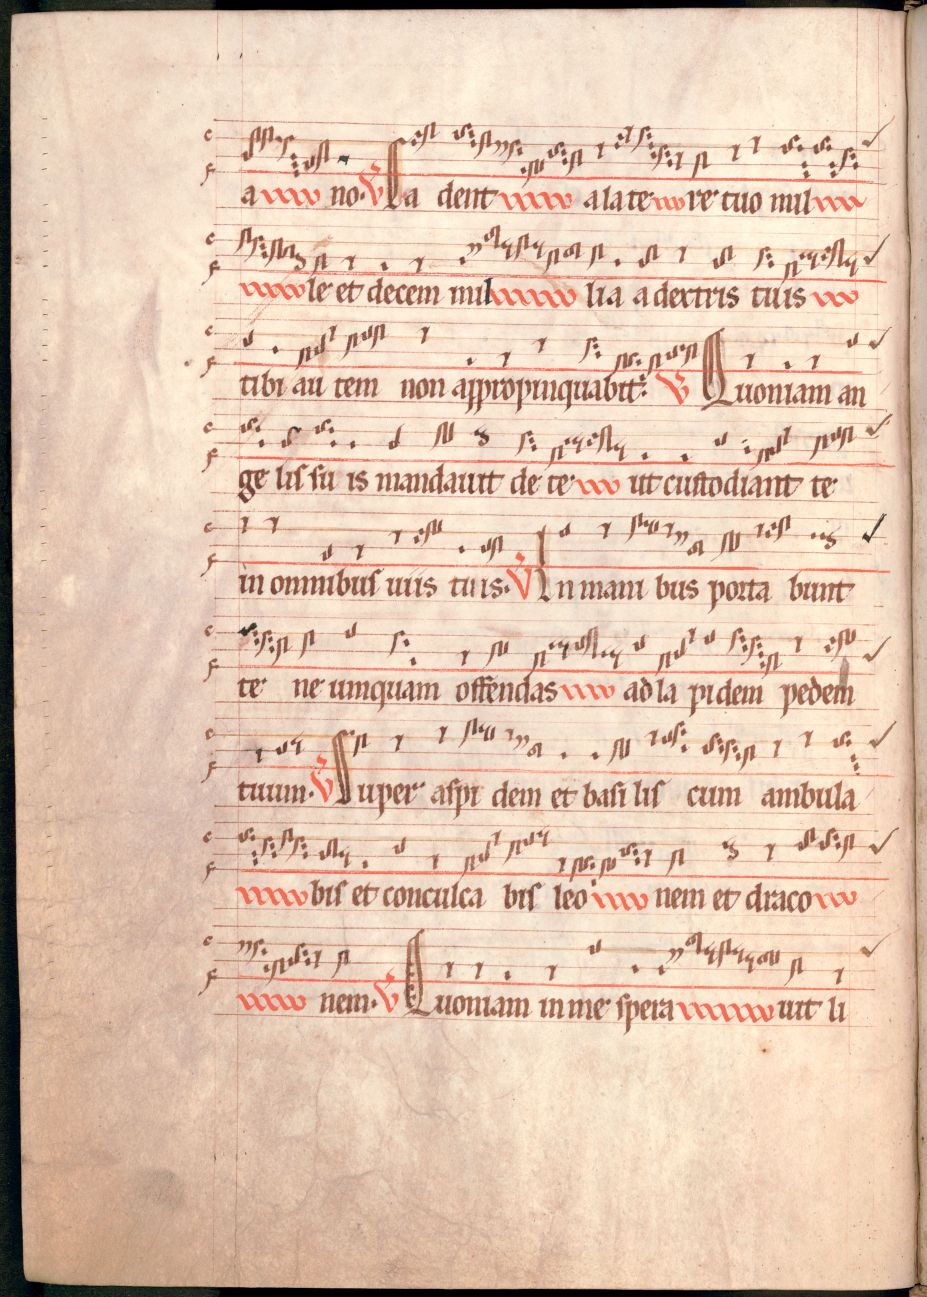 a no. V Ca dent a la te re tuo mil
le et decem mil lia a dextris tuis
tibi au tem non appropinquabit: V Quoniam an
ge lis su is mandauit de te ut custodiant te
in omnibus uiis tuis. V In mani bus porta bunt
te ne umquam offendas ad la pidem pedem
tuum. V Super aspi dem et basi lis cum ambula
bis et conculca bis leo nem et draco
nem. V Quoniam in me spera uit li